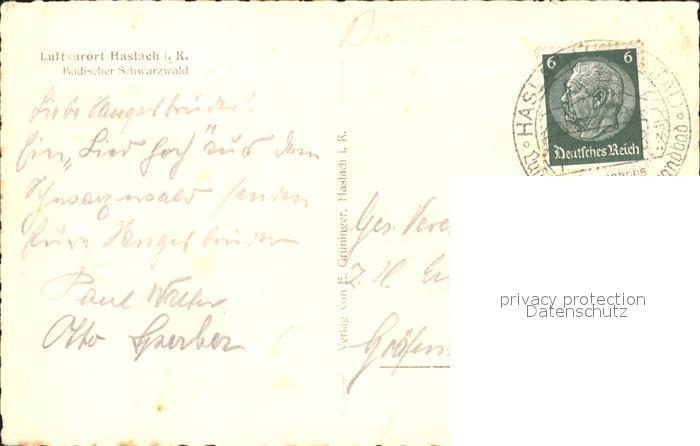 Luftkurort Haslach i. K.
Badischer Schwarzwald
Liebe Sangesbrüder!
Ein „Lied hoch" aus dem
Schwarzwald senden
Eure Sangesbrüder
Paul Walter
Otto Gerber
Verlag von E. Grüninger, Haslach i. K.
6 6
Deutsches Reich
HASL
Ges. Vere
Z. H.
Gräfen
privacy protection
Datenschutz